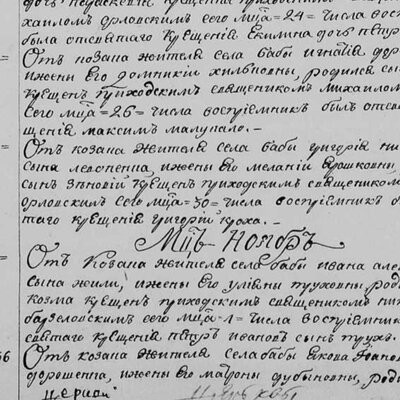 дочь Параскевия крещена приходскимъ
хаиломъ орловскимъ сего мца =24= числа восп
была отсвятаго крещенія Екилина дочь пѣтр
Отъ козака жителя села бабы игнатія дор
ижены Его домникіи хилповны, родился сы
крещенъ приходскимъ священикомъ михаиломъ
сего мца =26= числа воспріемникъ былъ отсвя
щенія максимъ малупало.—
Отъ козака жителя села бабы григорія ни
сына левоненка, ижены Его меланіи ярошковны
сынъ зѣновій крещенъ приходскимъ священикомъ
орловскимъ сего мца =30= числа воспріемникъ б
таго крещенія григорій кроха.—
Мцъ Ноябрь
Отъ козака жителя села бабы ивана але
сына жили, ижены Его улияны труховны, род
козма крещенъ приходскимъ священикомъ ни
базеловскимъ сего мца =1= числа воспріемни
святаго крещенія пѣтръ ивановъ сынъ трухъ.
36 Отъ козака жителя села бабы якова Ивано
дорошенка, ижены Его матроны дубыновны, род